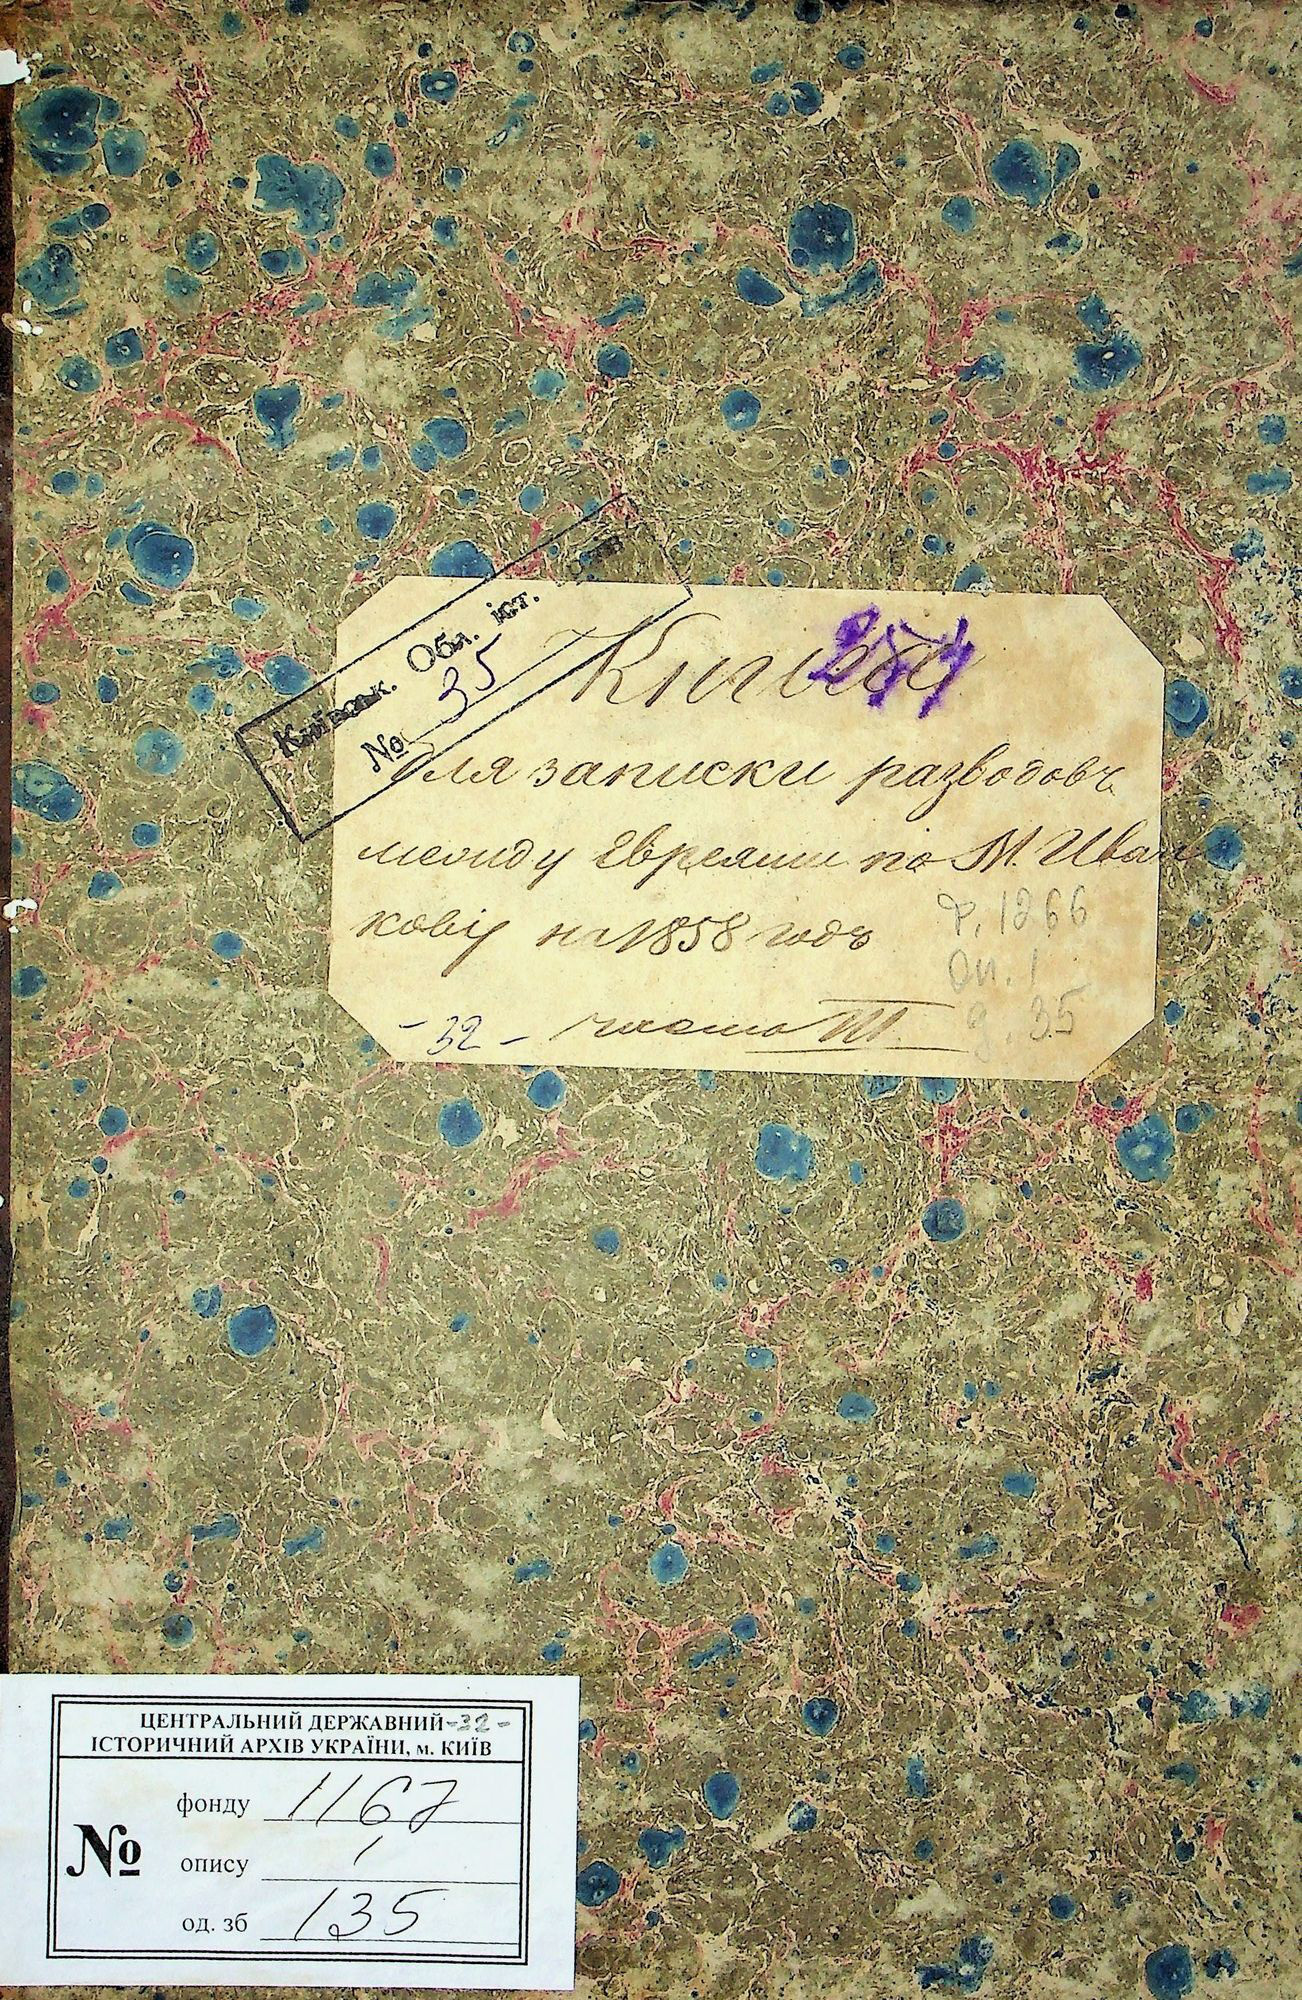 Київськ. Обл. іст.
№ 35
Книга
для записки разводовъ
между Евреями по М. Иван
кову на 1858 годъ
Ф. 1266
Оп. 1
д. 35
- 32 - часть III.
ЦЕНТРАЛЬНИЙ ДЕРЖАВНИЙ -32-
ІСТОРИЧНИЙ АРХІВ УКРАЇНИ, м. КИЇВ
фонду 1167
№ опису 1
од. зб 135